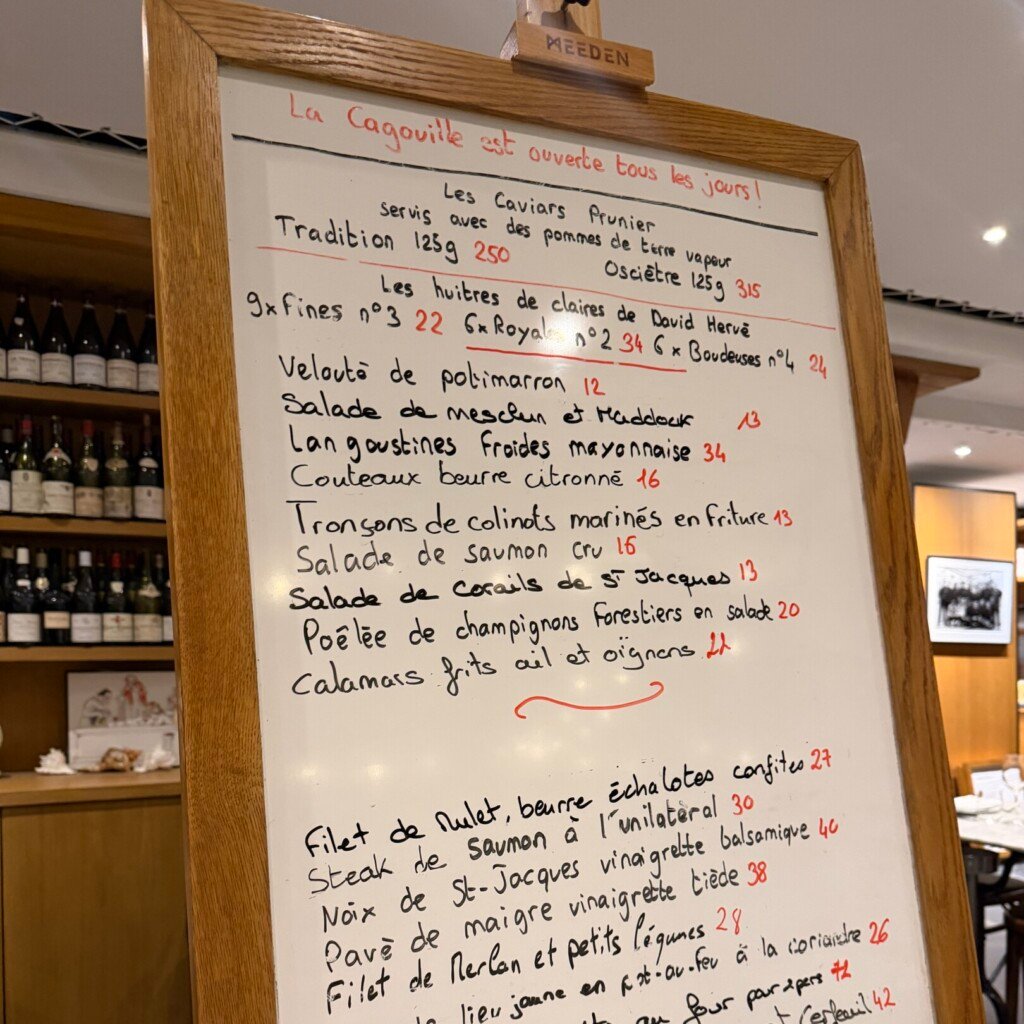 MEEDEN
La Cagouille est ouverte tous les jours!
Les Caviars Prunier
servis avec des pommes de terre vapeur
Tradition 125g 250
Osciètre 125g 315
Les huitres de claires de David Hervé
9x Fines n°3 22 6x Royale n°2 34 6x Boudeuses n°4 24
Velouté de potimarron 12
Salade de mesclun et Haddock 13
Langoustines froides mayonnaise 34
Couteaux beurre citronné 16
Tronçons de colinots marinés en friture 13
Salade de saumon cru 16
Salade de corails de St Jacques 13
Poêlée de champignons Forestiers en salade 20
Calamars frits ail et oignons
Filet de Mulet, beurre échalotes confites 27
Steak de saumon à l'unilatéral 30
Noix de St-Jacques vinaigrette balsamique 40
Pavé de maigre vinaigrette tiède 38
Filet de Merlan et petits légumes 28
lieu jaune en pot-au-feu à la coriandre 26
au four pour 2 pers
Cerfeuil 42